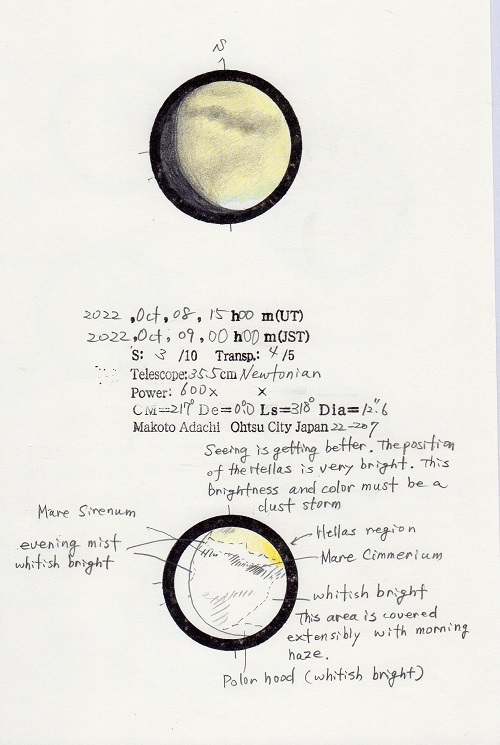 S
2022 ,Oct, 08, 15 h00 m(UT)
2022,Oct, 09, 00 h00 m(JST)
S: 3 /10 Transp.: 4/5
Telescope:35.5cm Newtonian
Power: 600× ×
CM=217° De=0.°0 Ls=318° Dia=12."6
Makoto Adachi Ohtsu City Japan 22-207
Seeing is getting better. The position
of the Hellas is very bright. This
brightness and color must be a
dust storm
Mare Sirenum
Hellas region
evening mist
whitish bright
Mare Cimmerium
whitish bright
This area is covered
extensibly with morning
haze.
Polar hood (whitish bright)